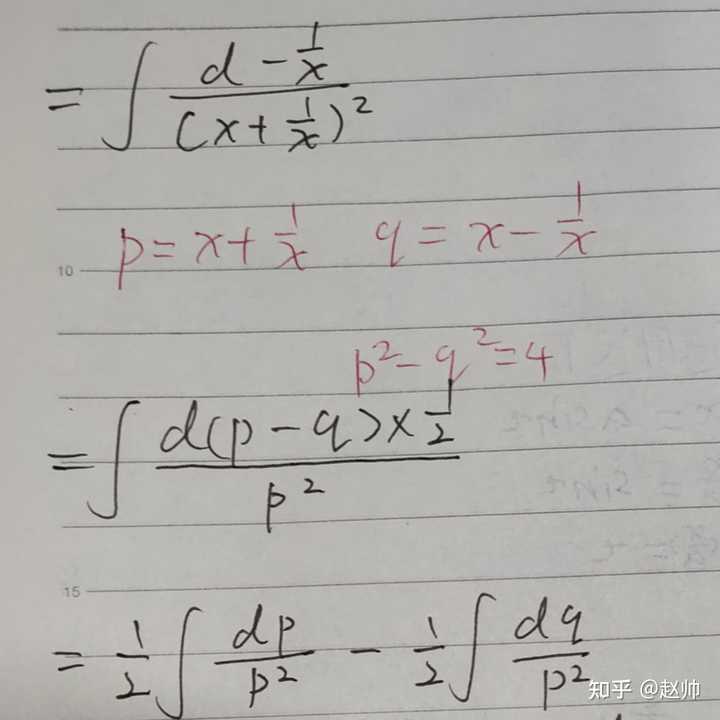 = ∫ d - 1/x / (x + 1/x)²
p = x + 1/x q = x - 1/x
10
p² - q² = 4
= ∫ d(p - q) × 1/2 / p²
15
= 1/2 ∫ dp/p² - 1/2 ∫ dq/p²
知乎 @赵帅